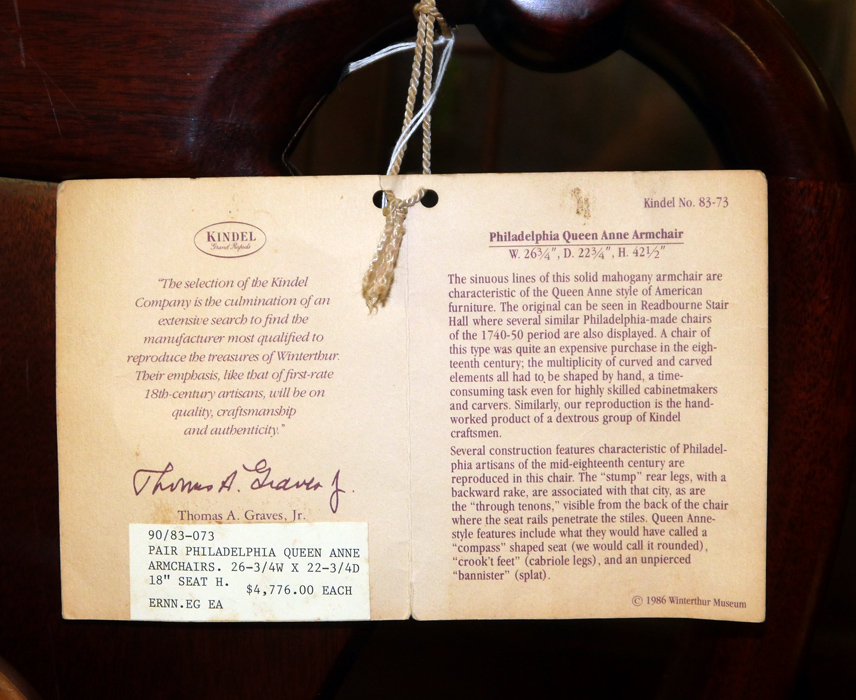 KINDEL
Grand Rapids
"The selection of the Kindel
Company is the culmination of an
extensive search to find the
manufacturer most qualified to
reproduce the treasures of Winterthur.
Their emphasis, like that of first-rate
18th-century artisans, will be on
quality, craftsmanship
and authenticity."
Thomas A. Graves Jr.
Thomas A. Graves, Jr.
90/83-073
PAIR PHILADELPHIA QUEEN ANNE
ARMCHAIRS. 26-3/4W X 22-3/4D
18" SEAT H.
$4,776.00 EACH
ERNN.EG EA
Kindel No. 83-73
Philadelphia Queen Anne Armchair
W. 26¾", D. 22¾", H. 42½"
The sinuous lines of this solid mahogany armchair are
characteristic of the Queen Anne style of American
furniture. The original can be seen in Readbourne Stair
Hall where several similar Philadelphia-made chairs
of the 1740-50 period are also displayed. A chair of
this type was quite an expensive purchase in the eigh-
teenth century; the multiplicity of curved and carved
elements all had to be shaped by hand, a time-
consuming task even for highly skilled cabinetmakers
and carvers. Similarly, our reproduction is the hand-
worked product of a dextrous group of Kindel
craftsmen.
Several construction features characteristic of Philadel-
phia artisans of the mid-eighteenth century are
reproduced in this chair. The "stump" rear legs, with a
backward rake, are associated with that city, as are
the "through tenons," visible from the back of the chair
where the seat rails penetrate the stiles. Queen Anne-
style features include what they would have called a
"compass" shaped seat (we would call it rounded),
"crook't feet" (cabriole legs), and an unpierced
"bannister" (splat).
© 1986 Winterthur Museum